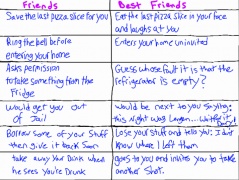 Friends
Best Friends
Save the last pizza slice for you
Eat the last pizza slice in your face
and laughs at you
Ring the bell before
entering your home
Enters your home uninvited
Asks permission
to take something from the
Fridge
Guess whose fault it is that the
refrigerator is empty?
Would get you out
of Jail
Would be next to you saying:
this night was Legen...
Borrow some of your stuff
then give it back soon
Lose your stuff and tells you: I don't
know where I left them
take away your Drink when
he sees you're Drunk
goes to you and invites you to take
another shot.